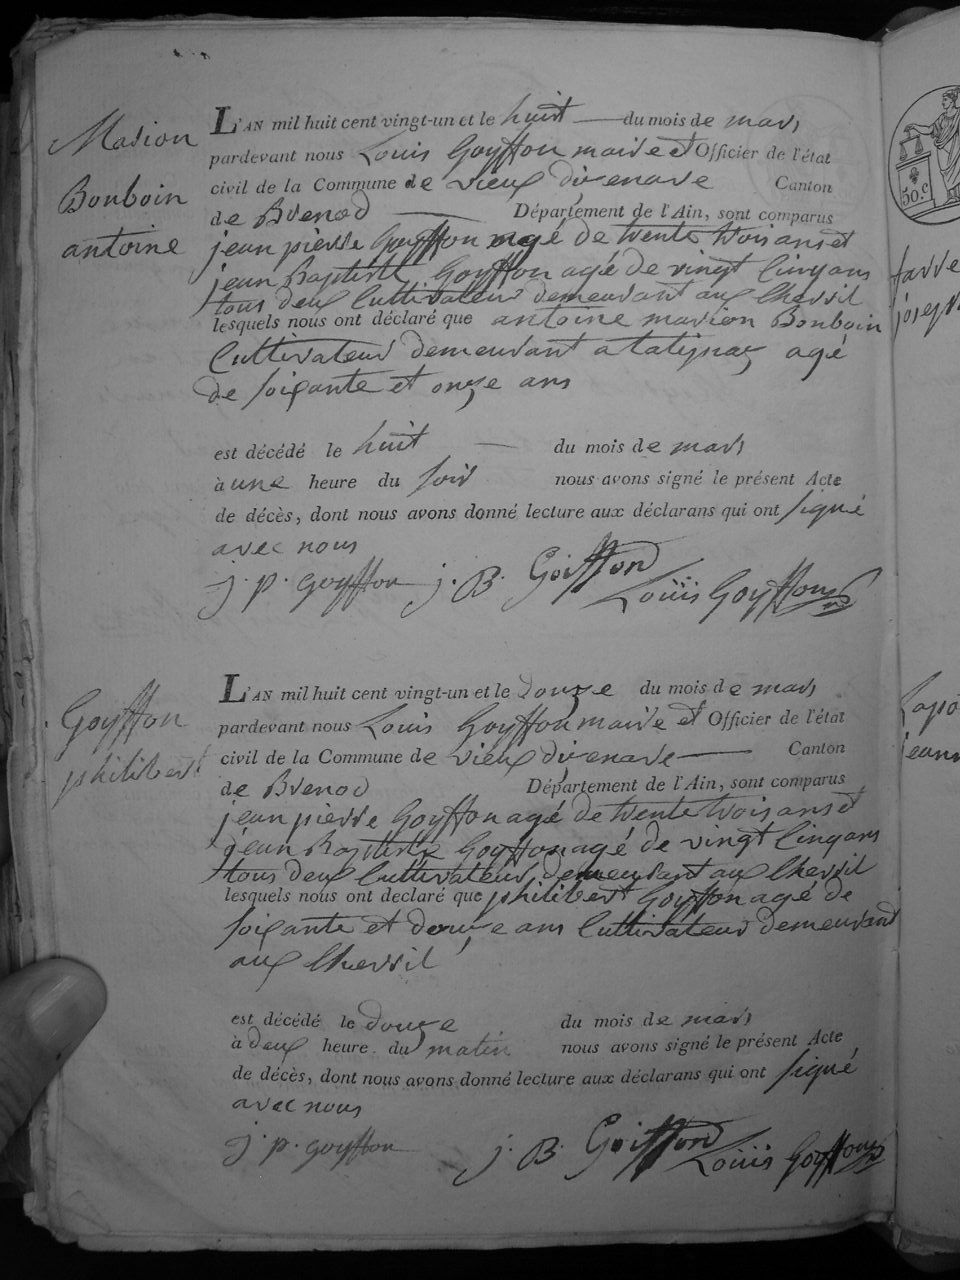 Marion
Bonboin
antoine
L'AN mil huit cent vingt-un et le huit du mois de mars
pardevant nous Louis Goyffon maire et Officier de l'état
civil de la Commune de vieux divenave Canton
de Brenod Département de l'Ain, sont comparus
jean pierre Goyffon agé de trente trois ans et
jean Baptiste Goyffon agé de vingt cinq ans
tous deux Cultivateur demeurant aux Chevril
lesquels nous ont déclaré que antoine marion Bonboin
Cultivateur demeurant a talignaz agé
de soixante et onze ans
est décédé le huit du mois de mars
à une heure du soir nous avons signé le présent Acte
de décès, dont nous avons donné lecture aux déclarans qui ont signé
avec nous
j. p. goyffon j. B. Goiffond
Louis Goyffon
Goyffon
philibert
L'AN mil huit cent vingt-un et le douze du mois de mars
pardevant nous Louis Goyffon maire et Officier de l'état
civil de la Commune de vieux divenave Canton
de Brenod Département de l'Ain, sont comparus
jean pierre Goyffon agé de trente trois ans et
jean Baptiste Goyffon agé de vingt cinq ans
tous deux Cultivateur demeurant aux Chevril
lesquels nous ont declaré que philibert Goyffon agé de
soixante et douze ans Cultivateur demeurant
aux Chevril
est décédé le douze du mois de mars
à deux heure du matin nous avons signé le présent Acte
de décès, dont nous avons donné lecture aux déclarans qui ont signé
avec nous
j. p. goyffon j. B. Goiffond Louis Goyffon
50.c
favre
joseph